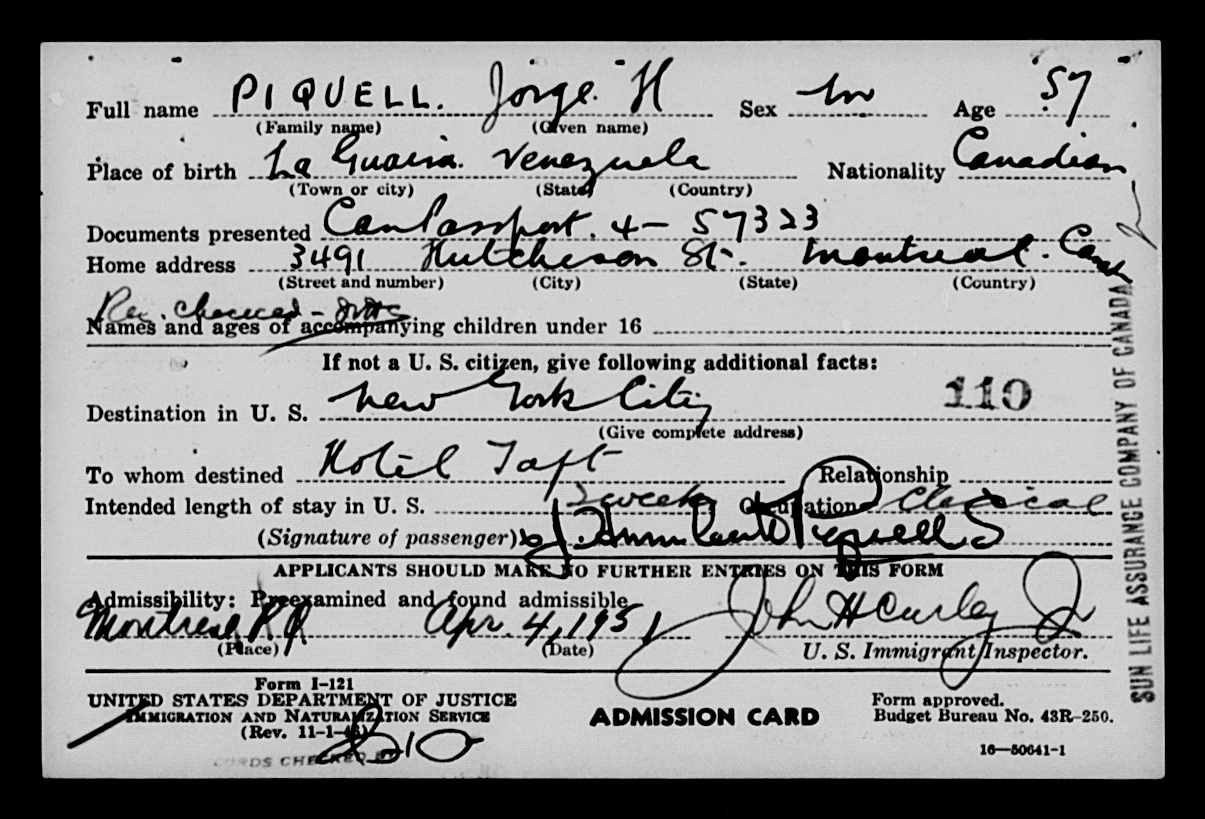 Full name PIQUELL. Jorge. H Sex m Age 57
(Family name) (Given name)
Place of birth La Guaira. Venezuela Nationality Canadian
(Town or city) (State) (Country)
Documents presented Can Passport. 4- 57323
Home address 3491 Hutcheson St. Montreal. Can
(Street and number) (City) (State) (Country)
Rec. checked -
Names and ages of accompanying children under 16
If not a U. S. citizen, give following additional facts:
Destination in U. S. New York City 110
(Give complete address)
To whom destined Hotel Taft Relationship
Intended length of stay in U. S. 2 weeks Occupation Clerical
(Signature of passenger) Piquell
APPLICANTS SHOULD MAKE NO FURTHER ENTRIES ON THIS FORM
Admissibility: Preexamined and found admissible
Montreal P Q Apr. 4, 1951 John H Curley Jr
(Place) (Date) U. S. Immigrant Inspector.
Form I-121
UNITED STATES DEPARTMENT OF JUSTICE
IMMIGRATION AND NATURALIZATION SERVICE
(Rev. 11-1-
ADMISSION CARD
Form approved.
Budget Bureau No. 43R-250.
16—50641-1
SUN LIFE ASSURANCE COMPANY OF CANADA